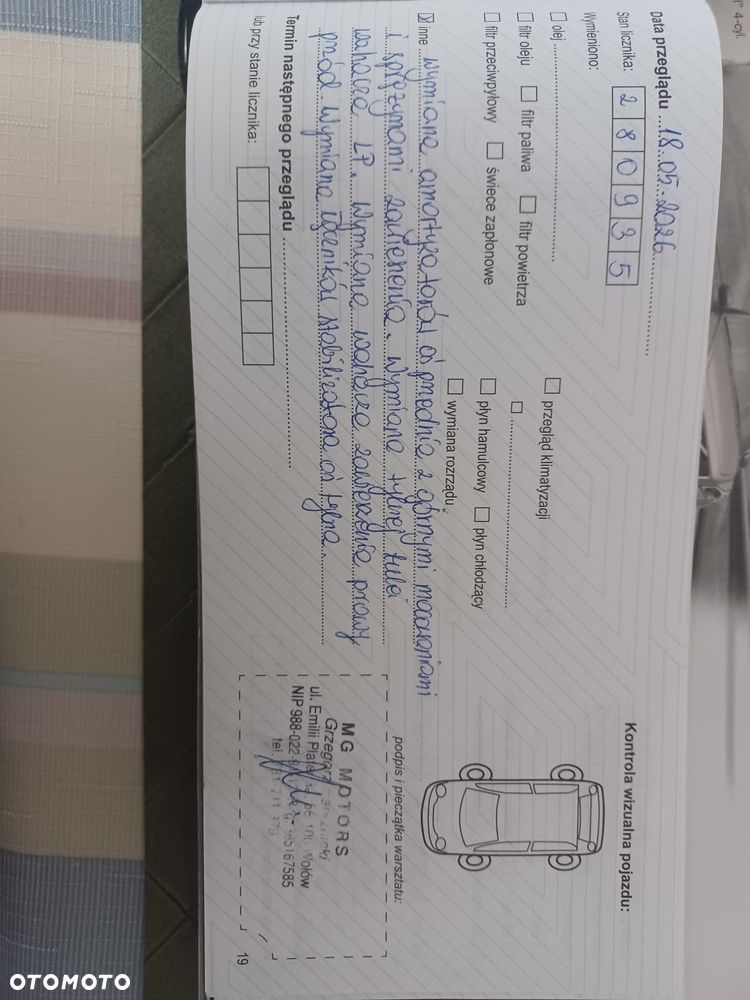 Data przeglądu ...18.05.2026...
Stan licznika: 280935
Wymieniono:
olej
filtr oleju filtr paliwa filtr powietrza
filtr przeciwpyłowy świece zapłonowe
przegląd klimatyzacji
płyn hamulcowy płyn chłodzący
wymiana rozrządu
inne wymiana amortyzatorów oś przednia z górnymi mocowaniami
i sprężynami zawieszenia. Wymiana tylnej tulei
wahacza LP. Wymiana wahacza zawieszenia prawy
przód Wymiana łączników stabilizatora oś tylna.
Termin następnego przeglądu
lub przy stanie licznika:
Kontrola wizualna pojazdu:
podpis i pieczątka warsztatu:
MG MOTORS
Grzegorz
ul. Emilii Wołów
NIP 988-022 165167585
tel.
19
4-cyl.
OTOMOTO